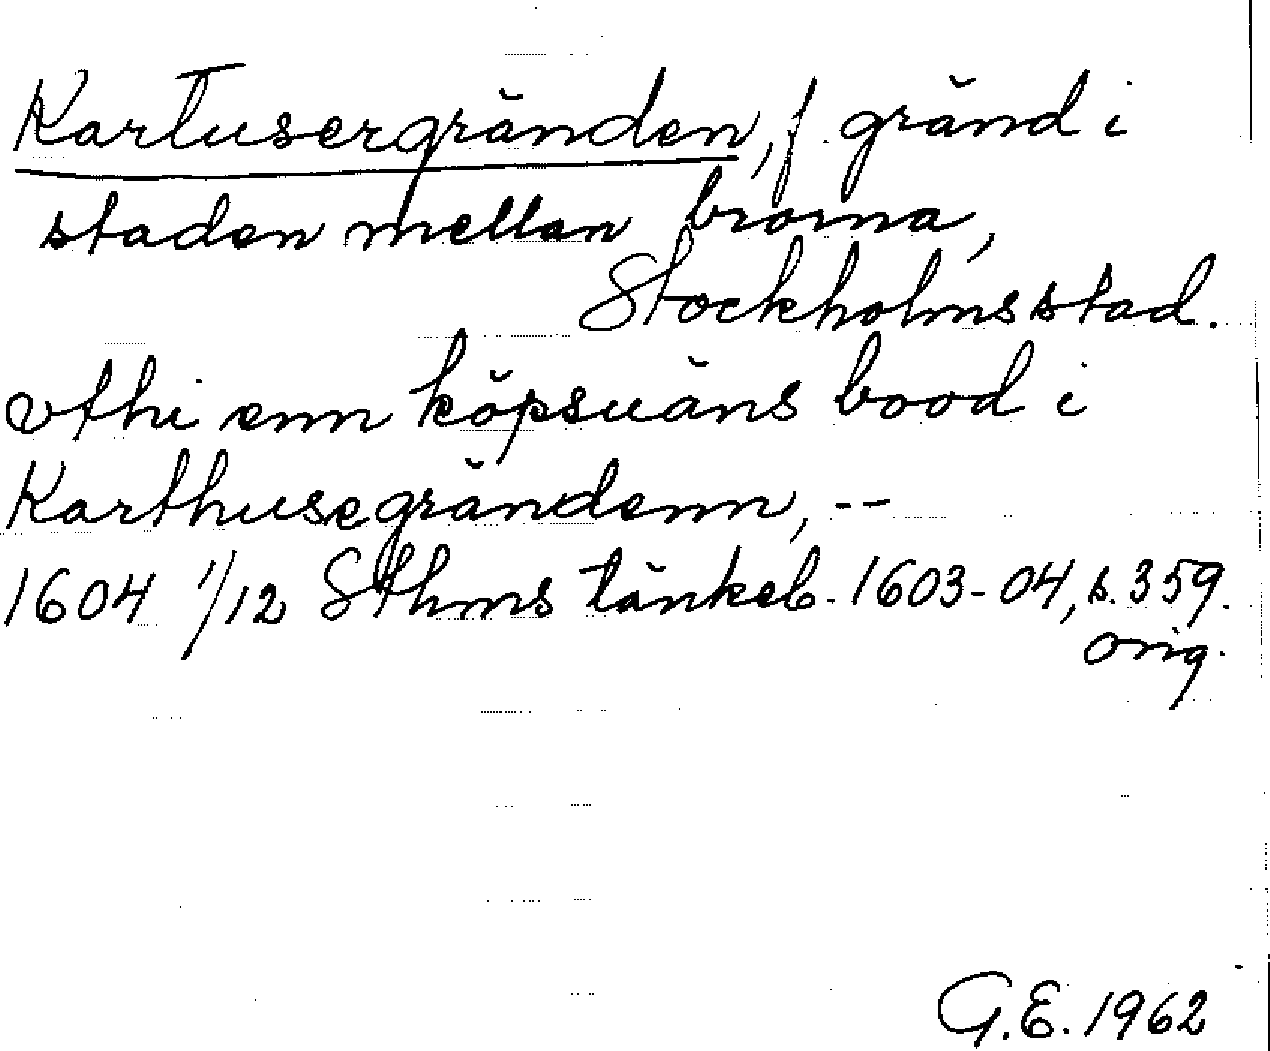 Kartusergränden, f. gränd i
staden mellan broarna,
Stockholms stad.
vthi enn köpsuäns bood i
Karthusegrändenn, --
1604 1/12 Sthms tänkeb. 1603-04, s. 359.
orig.
G.E. 1962